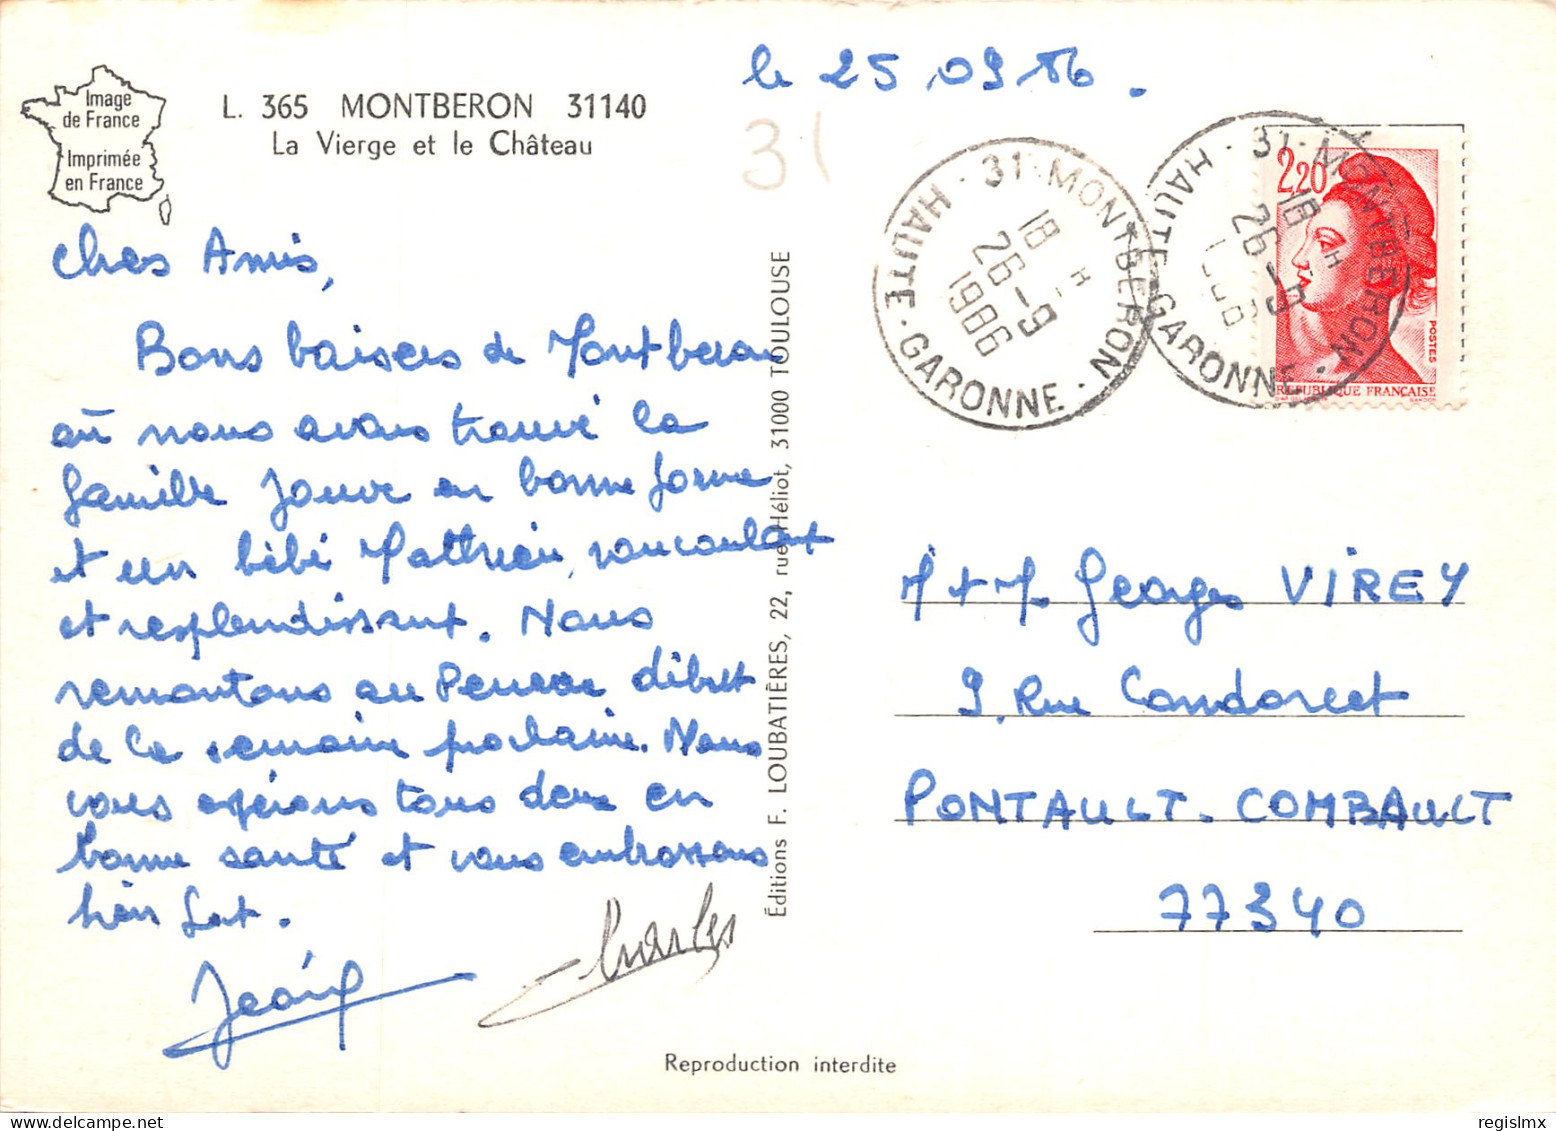 Image
de France
Imprimée
en France
L. 365 MONTBERON 31140
La Vierge et le Château
le 25 09 86.
31
Chers Amis,
Bons baisers de Montberon
où nous avons trouvé la
famille Jouve en bonne forme
et un bébé Matthieu, roucoulant
et resplendissant. Nous
remontons au Perreux début
de la semaine prochaine. Nous
vous espérons tous deux en
bonne santé et vous embrassons
bien fort.
Charles
Éditions F. LOUBATIÈRES, 22, rue Héliot, 31000 TOULOUSE
31 - MONTBERON
18 H
26 - 9
1986
HAUTE - GARONNE
31 - MONTBERON
18 H
26 - 9
HAUTE - GARONNE
2,20
POSTES
REPUBLIQUE FRANÇAISE
GANDON
M + Me Georges VIREY
9, Rue Condorcet
PONTAULT-COMBAULT
77340
Reproduction interdite
regislmx